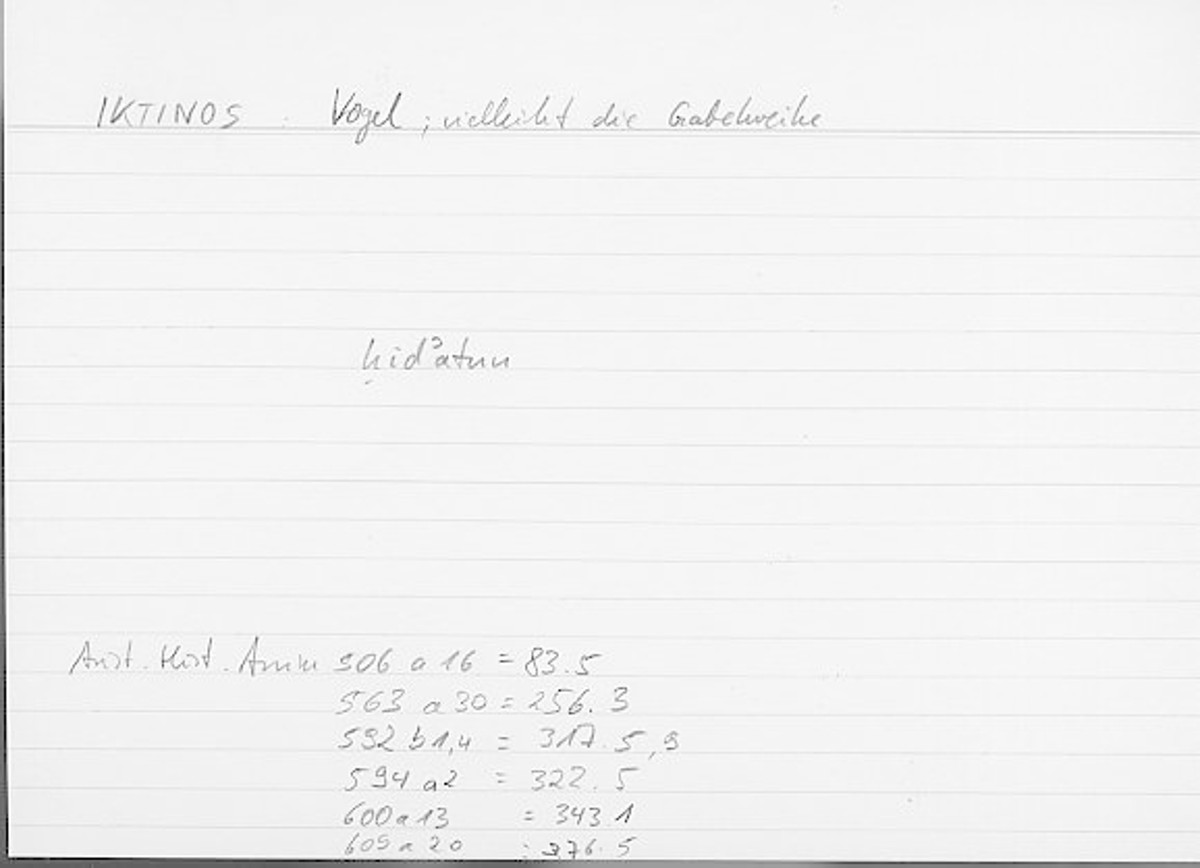 IKTINOS : Vogel ; vielleicht die Gabelweihe
ḥidʾatun
Arist. Hist. Anim 506 a 16 = 83.5
563 a 30 = 256.3
592 b 1,4 = 317.5,9
594 a 2 = 322.5
600 a 13 = 343.1
609 a 20 : 376.5